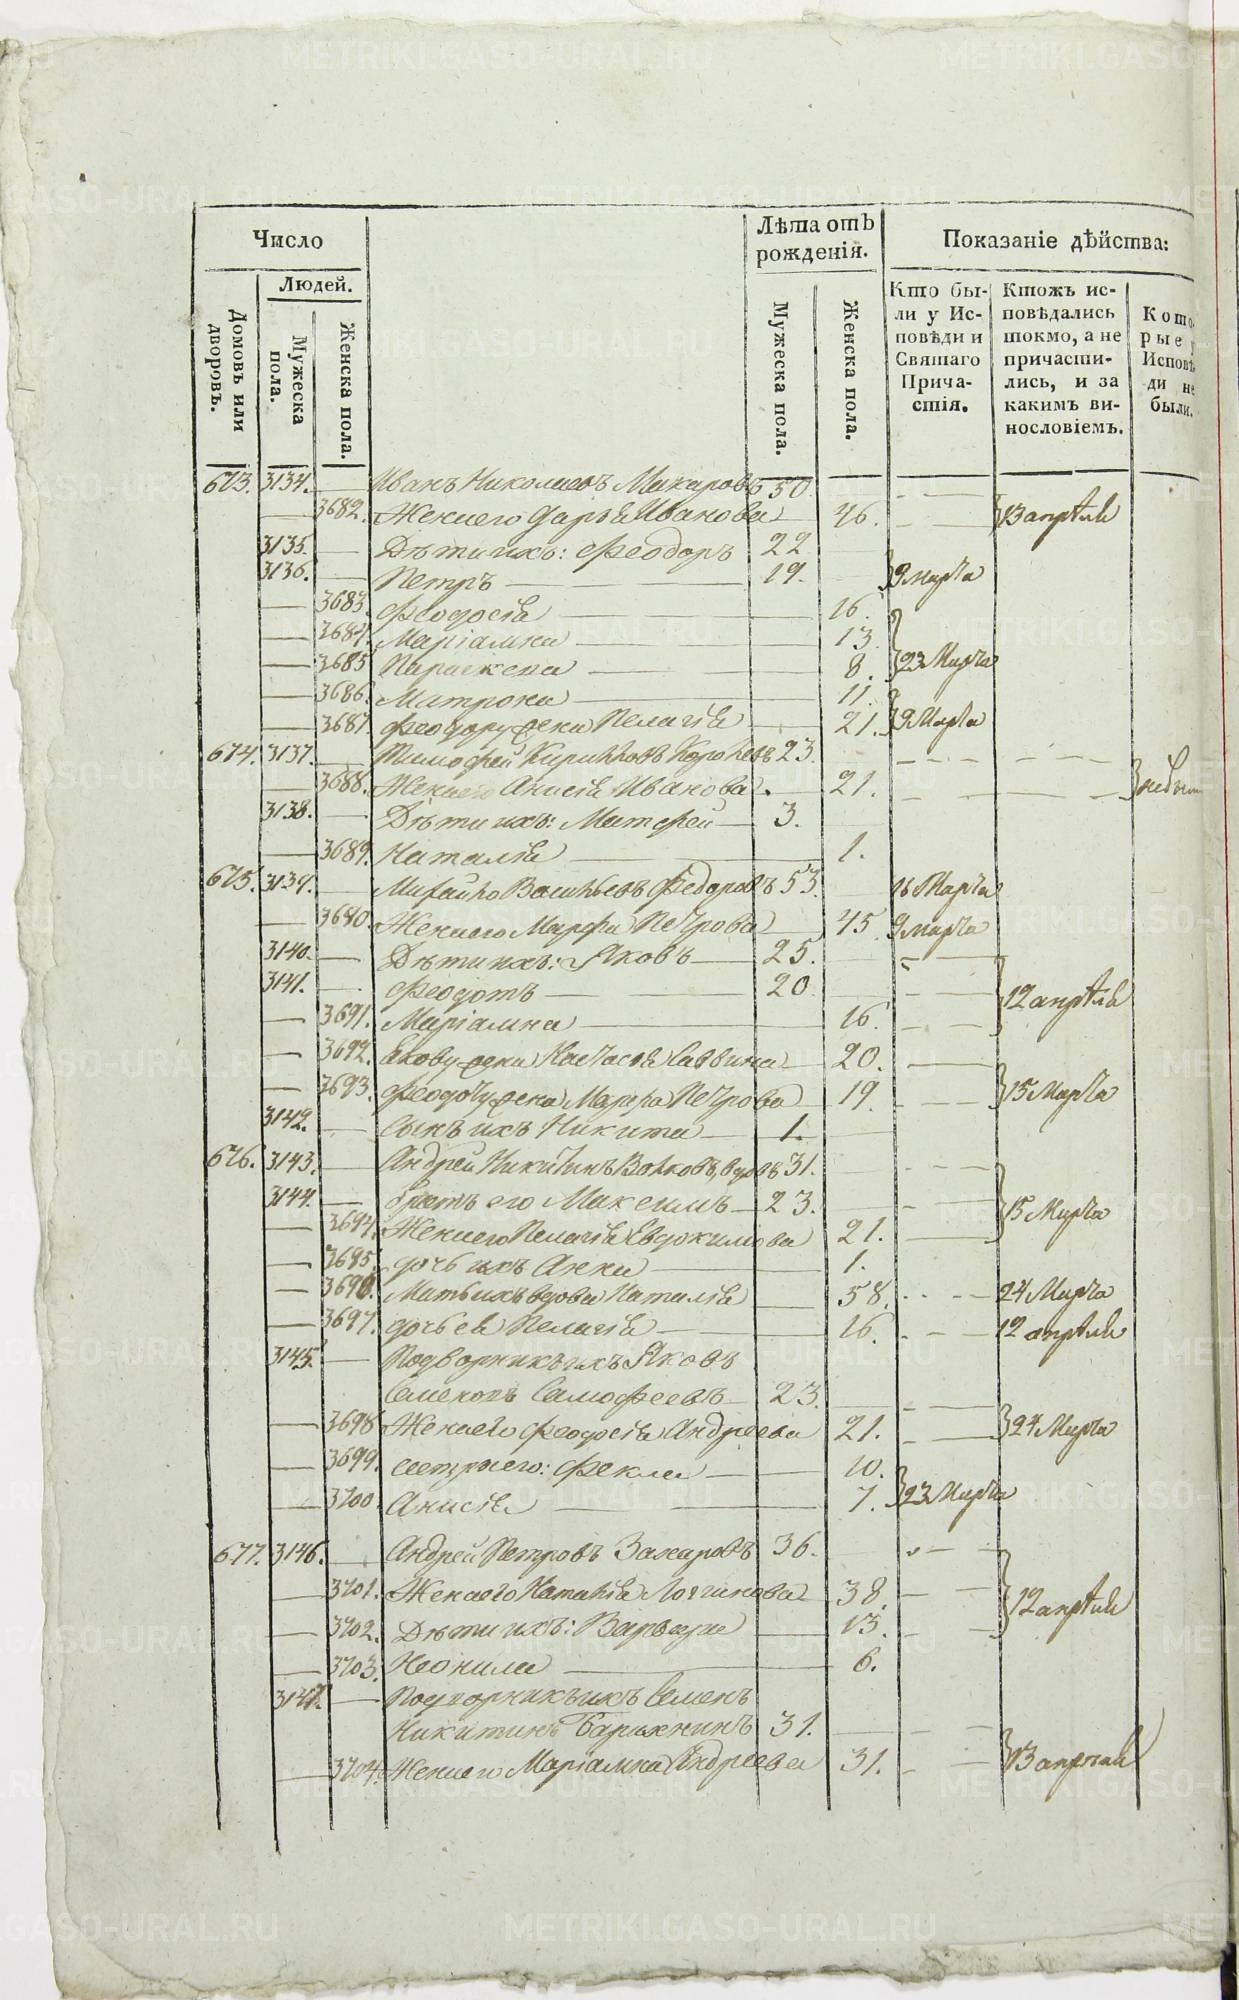 Число
Людей.
Домовъ или дворовъ.
Мужеска пола.
Женска пола.
Лѣта отъ рожденія.
Мужеска пола.
Женска пола.
Показаніе дѣйства:
Кто бы-
ли у Ис-
повѣди и
Святаго
Прича-
стія.
Ктожъ ис-
повѣдались
токмо, а не
причасти-
лись, и за
какимъ ви-
нословіемъ.
Кото-
рые у
Исповѣ-
ди не
были.
673. 3134. Иванъ Николаевъ Макаровъ 50.
3682. Жена его Дарья Иванова 46. 13 апрѣля
3135. Дѣти ихъ: Феодоръ 22
3136. Петръ 19. 9 марта
3683. Феодосія 16.
3684. Маріамна 13
3685 Параскева 8. 23 Марта
3686. Матрона 11.
3687. Феодору жена Пелагія 21. 9 Марта
674. 3137. Тимофей Кириловъ 23.
3688. Жена его Анисія Иванова 21. небыли
3138. Дѣти ихъ: Матфей 3.
3689. Наталія 1.
675. 3139. Михайло Васильевъ Федоровъ 53. 16 Марта
3680. Жена его Марфа Петрова 45. 9 марта
3140. Дѣти ихъ: Яковъ 25.
3141. Феодотъ 20. 12 апрѣля
3691. Маріамна 16.
3692. Якову жена Настасія Саввина 20.
3693. Феодоту жена Марфа Петрова 19. 15 Марта
3142. Сынъ ихъ Никита 1.
676. 3143. Андрей Никитинъ Волковъ, вдовъ 31.
3144. братъ его Максимъ 23. 15 Марта
3694. Жена его Пелагія Евдокимова 21.
3695. дочь ихъ Анна 1.
3696. Мать ихъ вдова Наталія 58. 24 Марта
3697. дочь ея Пелагія 16. 12 апрѣля
3145. Подворникъ ихъ Яковъ
Семеновъ Самофеевъ 23.
3698 Жена его Феодосія Андреева 21. 24 Марта
3699. сестры его: Фекла 10.
3700. Анисія 7. 23 Марта
677. 3146. Андрей Петровъ Захаровъ 36.
3701. Жена его Наталія Логинова 38. 12 апрѣля
3702. Дѣти ихъ: Варвара 13.
3703. Неонила 6.
3147. Подворникъ ихъ Семенъ
Никитинъ 31.
3704. Жена его Маріамна Андреева 31. 13 апрѣля
METRIKI.GASO-URAL.RU